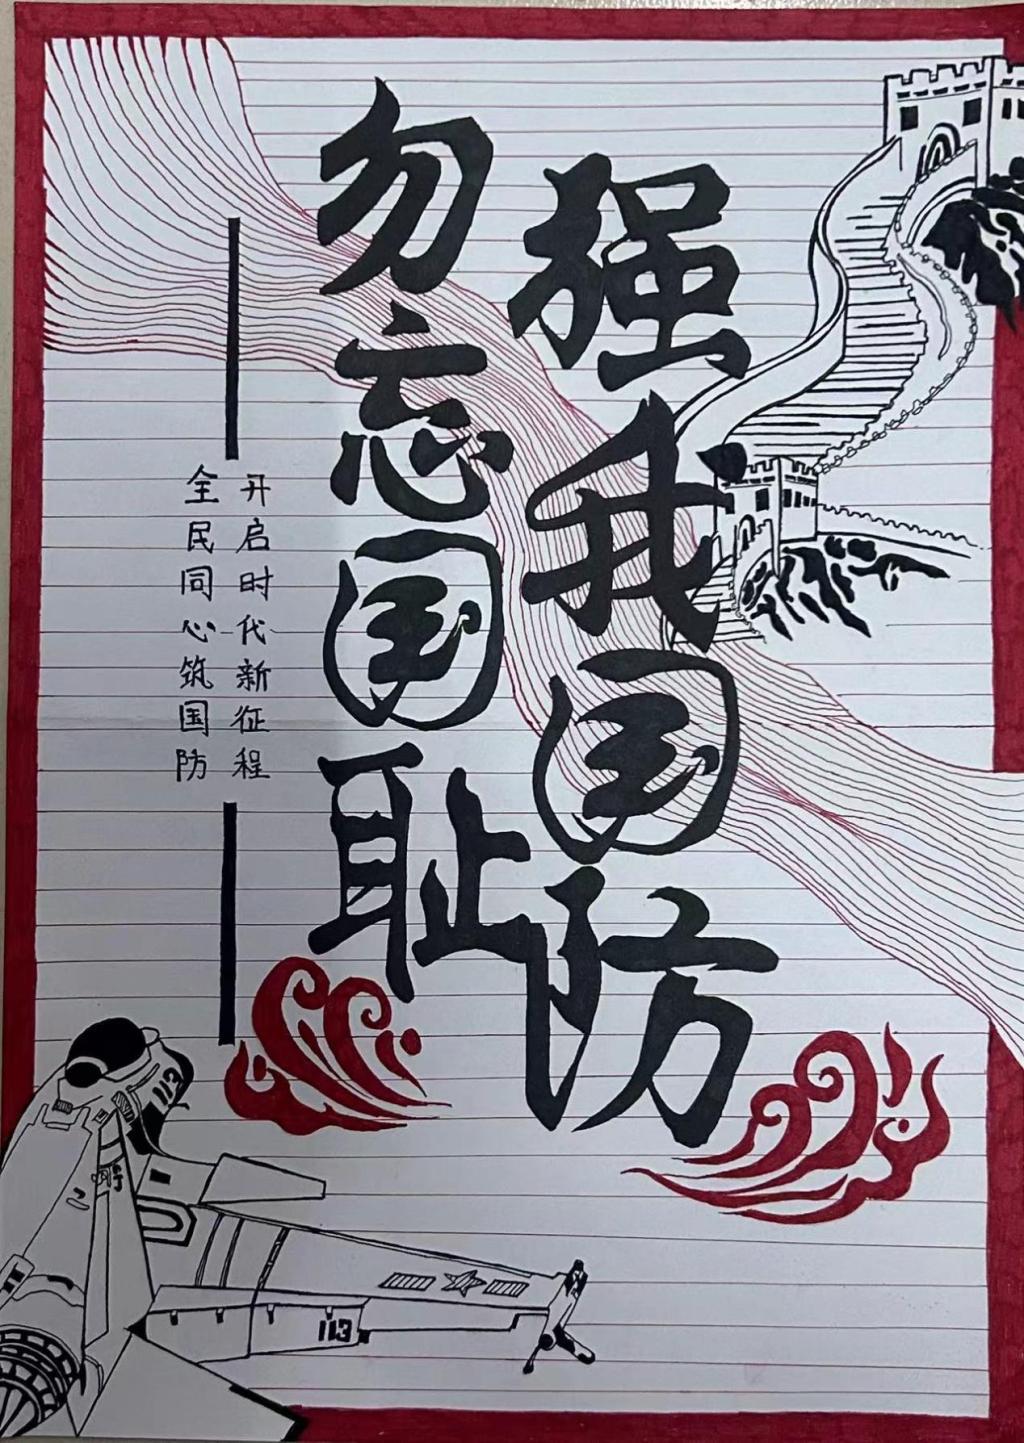 强我国防
勿忘国耻
开启时代新征程
全民同心筑国防
113
113